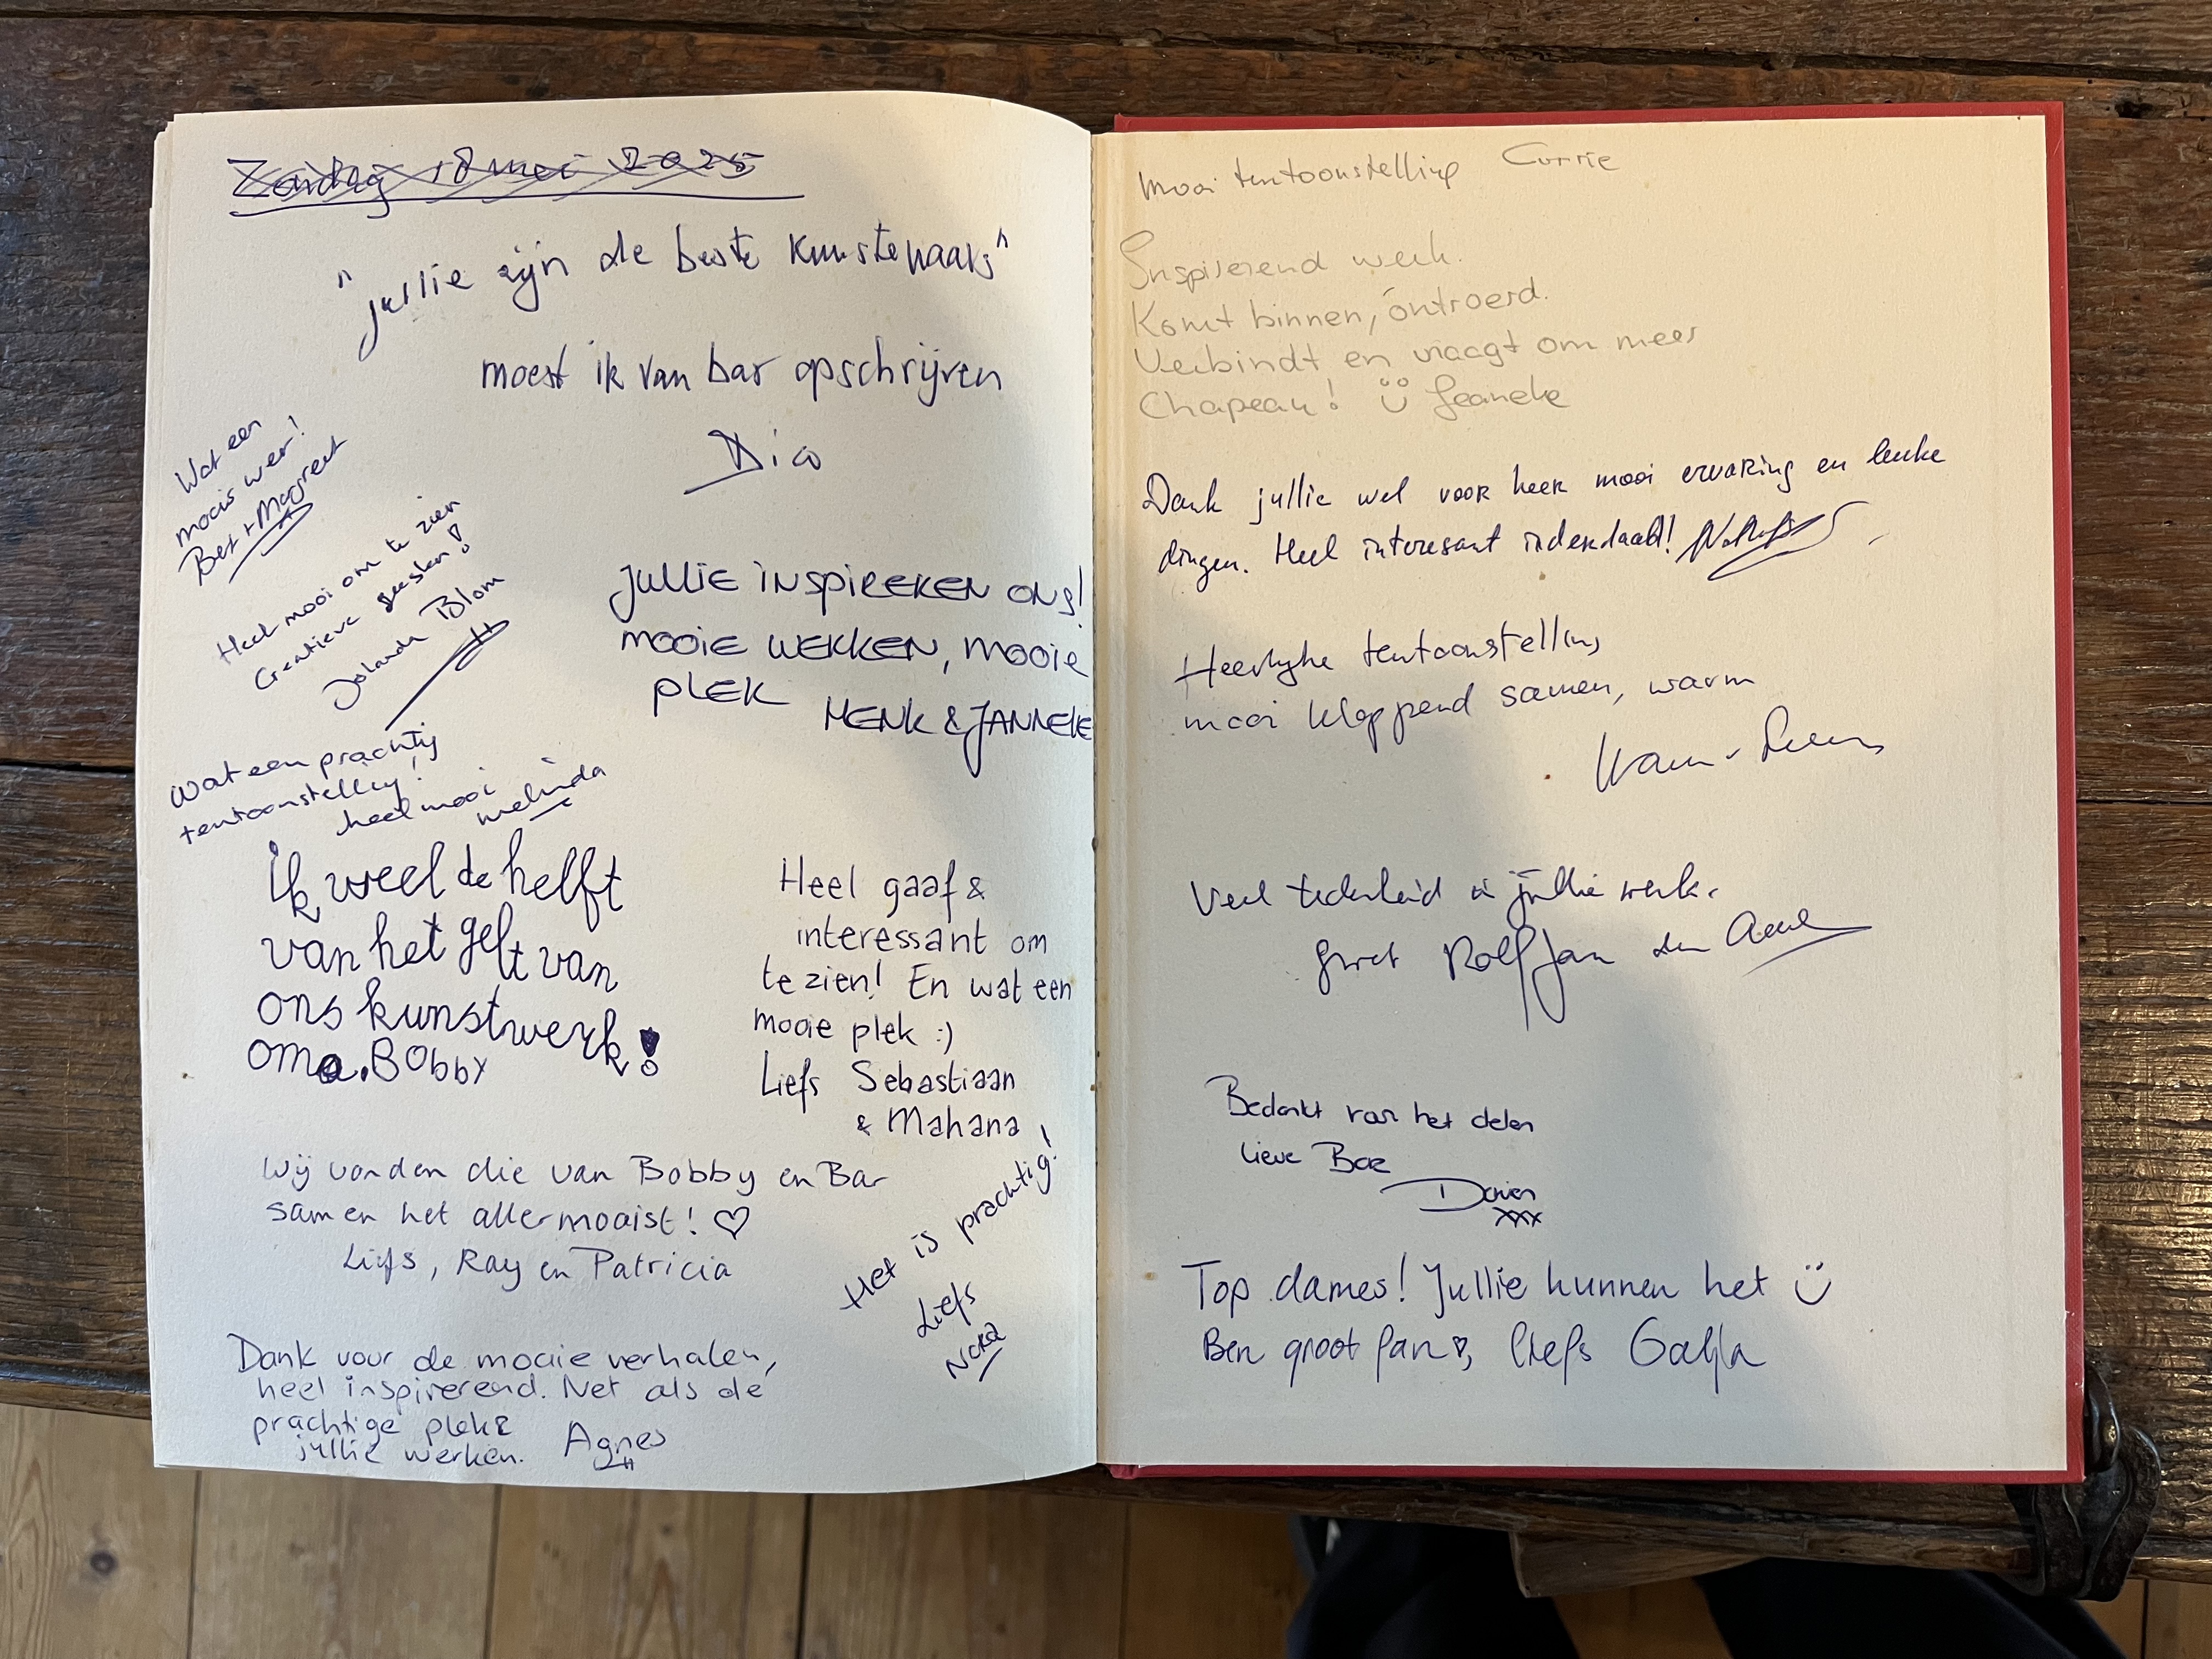 Zondag 18 mei 2025
"jullie zijn de beste kunstenaars"
moest ik van bar opschrijven
Dico
Wat een
moois weer!
Bert + Magreet
Heel mooi om te zien
Creatieve geesten!
Jolanda Blom
JULLIE INSPIREREN ONS!
MOOIE WERKEN, MOOIE
PLEK
HENK & JANNEKE
Wat een prachtig
tentoonstelling!
heel mooi
melinda
ik weel de helft
van het gelt van
ons kunstwerk!
oma. Bobby
Heel gaaf &
interessant om
te zien! En wat een
mooie plek :)
Liefs Sebastiaan
& Mahana
Wij vonden die van Bobby en Bar
samen het allermooist! ♡
Liefs, Ray en Patricia
Het is prachtig!
Liefs
Nora
Dank voor de mooie verhalen,
heel inspirerend. Net als de
prachtige plek &
jullie werken. Agnes
Mooi tentoonstelling Corrie
Inspirerend werk.
Komt binnen, ontroerd.
Verbindt en vraagt om meer
Chapeau! Ü Jeaneke
Dank jullie wel voor heel mooi ervaring en leuke
dingen. Heel interesant inderdaad!
Heerlijke tentoonstelling
mooi kloppend samen, warm
Veel tederheid in jullie werk.
groet Rolf Jan den
Bedankt voor het delen
lieve Bar
Dorien
xxx
Top dames! Jullie kunnen het Ü
Ben groot fan♡, liefs